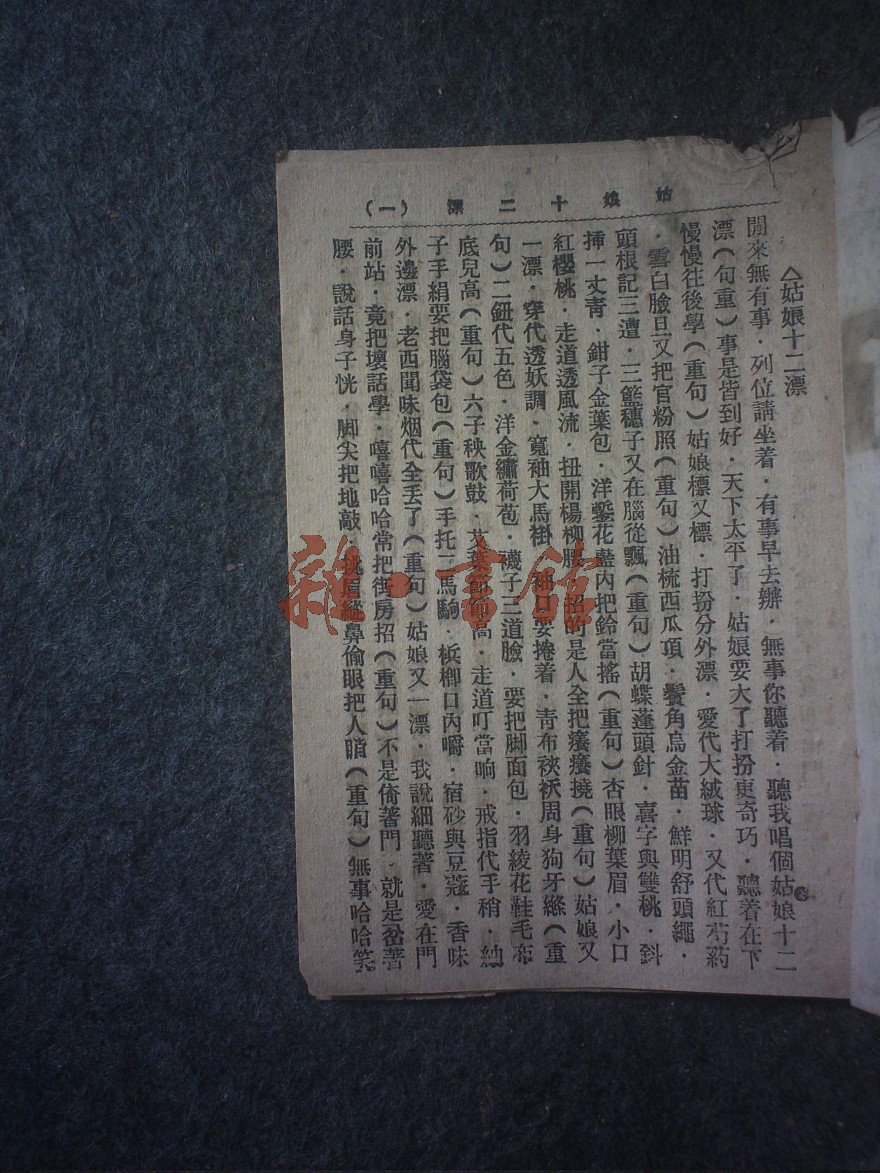 姑娘十二漂(一)
姑娘十二漂
閒來無有事．列位請坐着．有事早去辦．無事你聽着．聽我唱個姑娘十二
漂(句重)事是皆到好．天下太平了．姑娘要大了打扮更奇巧．聽着在下
慢慢往後學(重句)姑娘標又標．打扮分外漂．愛代大絨球．又代紅芍药
．雲白臉旦又把官粉照(重句)油梳西瓜項．鬢角烏金苗．鮮明舒頭繩．
頭根記三遭．三籃穗子又在腦從飄(重句)胡蝶蓬頭針．喜字與雙桃．斜
揷一丈靑．鉗子金葉包．洋鏨花藍內把鈴當搖(重句)杏眼柳葉眉．小口
紅櫻桃．走道透風流．扭開楊柳腰．招的是人全把癢癢撓(重句)姑娘又
一漂．穿代透妖調．寬袖大馬褂．袖口要捲着．靑布袂袄周身狗牙縧(重
句)二鈕代五色．洋金繡荷苞．襪子三道臉．要把脚面包．羽綾花鞋毛布
底兒高(重句)六子秧歌鼓．艾葉節節高．走道叮當响．戒指代手稍．紬
子手絹要把腦袋包(重句)手托三馬駒．梹榔口內嚼．宿砂與豆蔻．香味
外邊漂．老西聞味烟代全丢了(重句)姑娘又一漂．我說細聽著．愛在門
前站．竟把壞話學．嘻嘻哈哈常把街房招(重句)不是倚著門．就是岔著
腰．說話身子恍．脚尖把地敲．挑眉縱鼻偷眼把人䁂(重句)無事哈哈笑
雜·書館